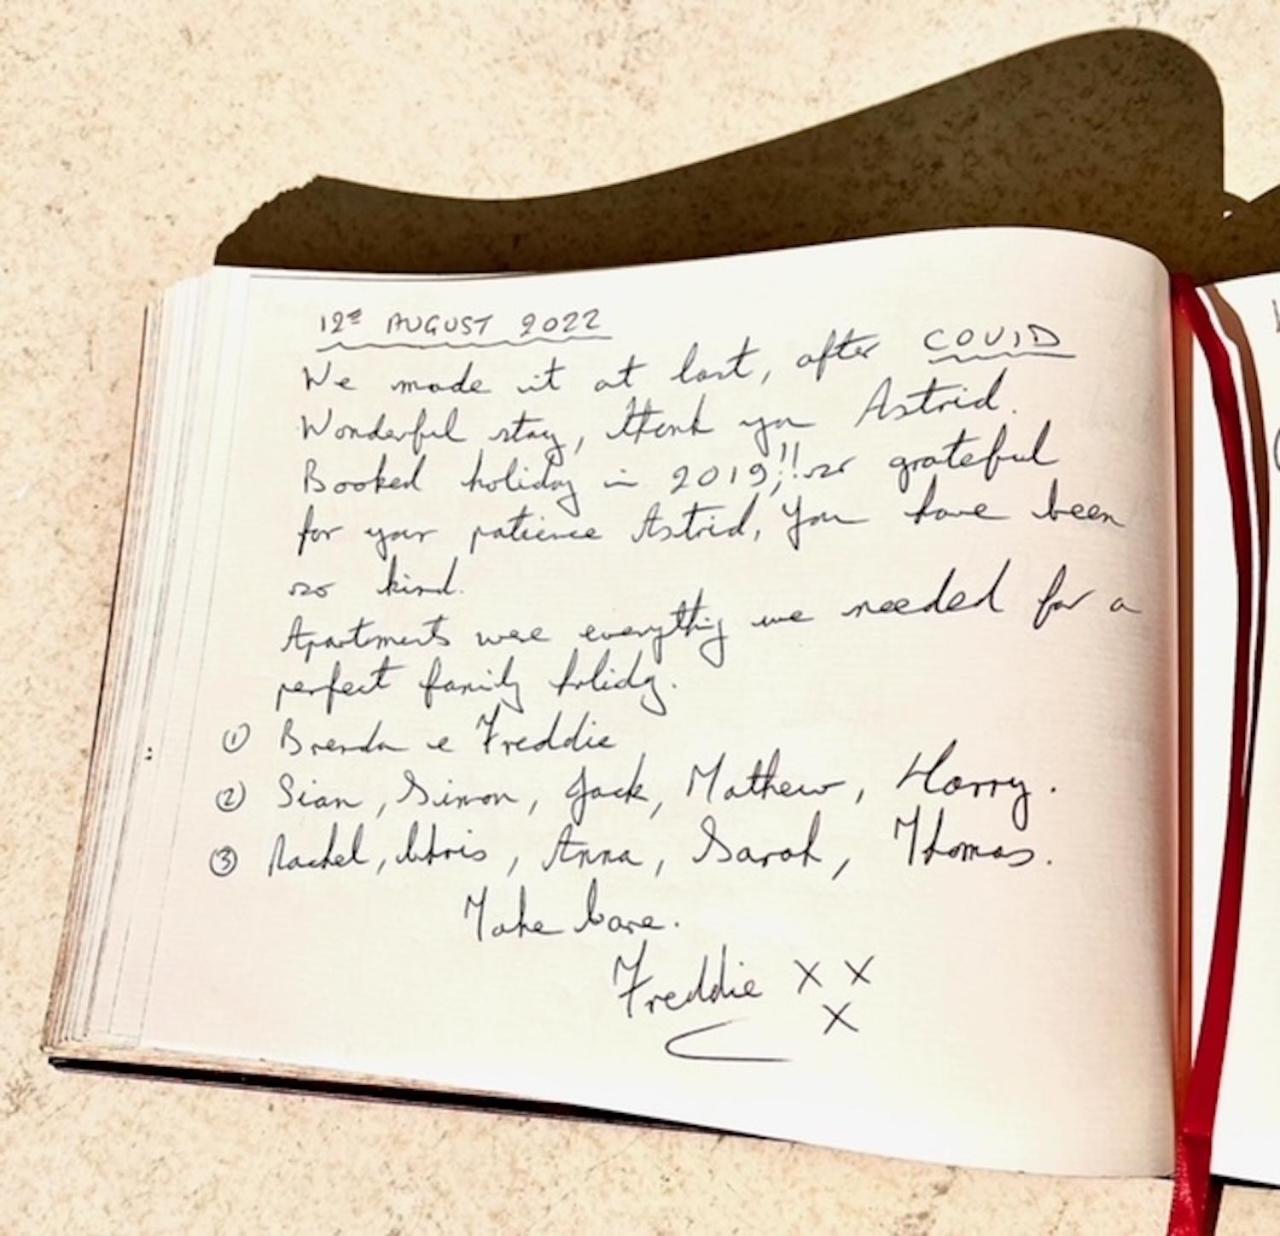 12th AUGUST 2022
We made it at last, after COVID
Wonderful stay, thank you Astrid.
Booked holiday in 2019,!! so grateful
for your patience Astrid, you have been
so kind.
Apartments were everything we needed for a
perfect family holiday.
① Brenda e Freddie
② Sian, Simon, Jack, Mathew, Harry.
③ Rachel, Chris, Anna, Sarah, Thomas.
Take Care.
Freddie x x
x